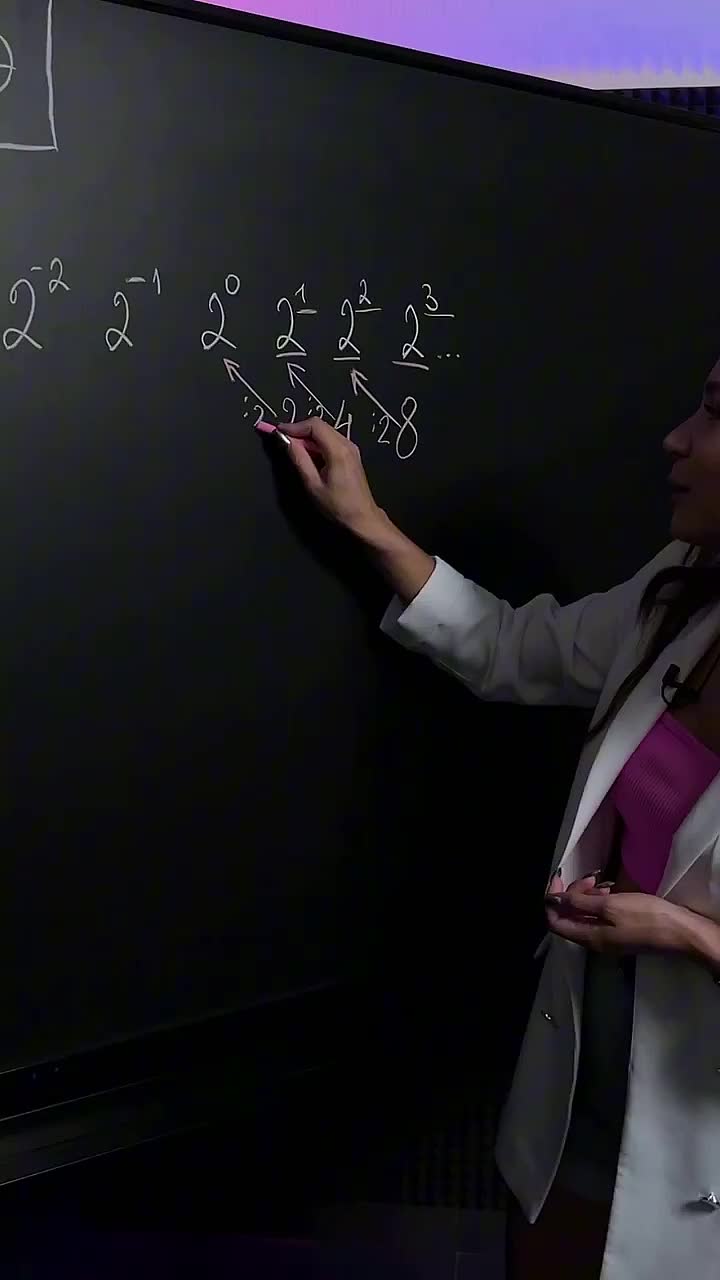 2⁻² 2⁻¹ 2⁰ 2¹ 2² 2³ ...
:2 2 :2 4 :2 8